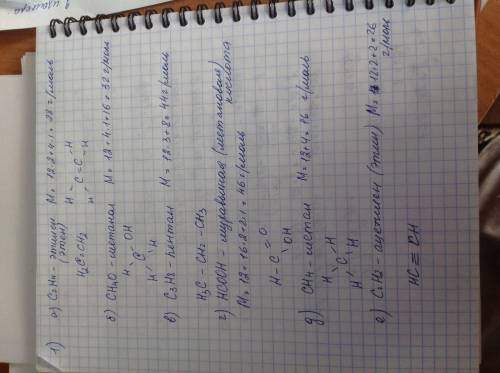 1) а) C₂H₄ - этилен M = 12·2+4·1 = 28 г/моль
(этен)
H₂C=CH₂
H H
C = C
H H
б) CH₄O - метанол M = 12+4·1+16 = 32 г/моль
H OH
C
H H
в) C₃H₈ - пентан M = 12·3+8 = 44 г/моль
H₃C - CH₂ - CH₃
г) HCOOH - муравьиная (метановая) кислота
M = 12+16·2+2·1 = 46 г/моль
H - C = O
OH
д) CH₄ - метан M = 12+4 = 16 г/моль
H H
C
H H
е) C₂H₂ - ацетилен (этин) M = 12·2+2 = 26
г/моль
HC ≡ CH